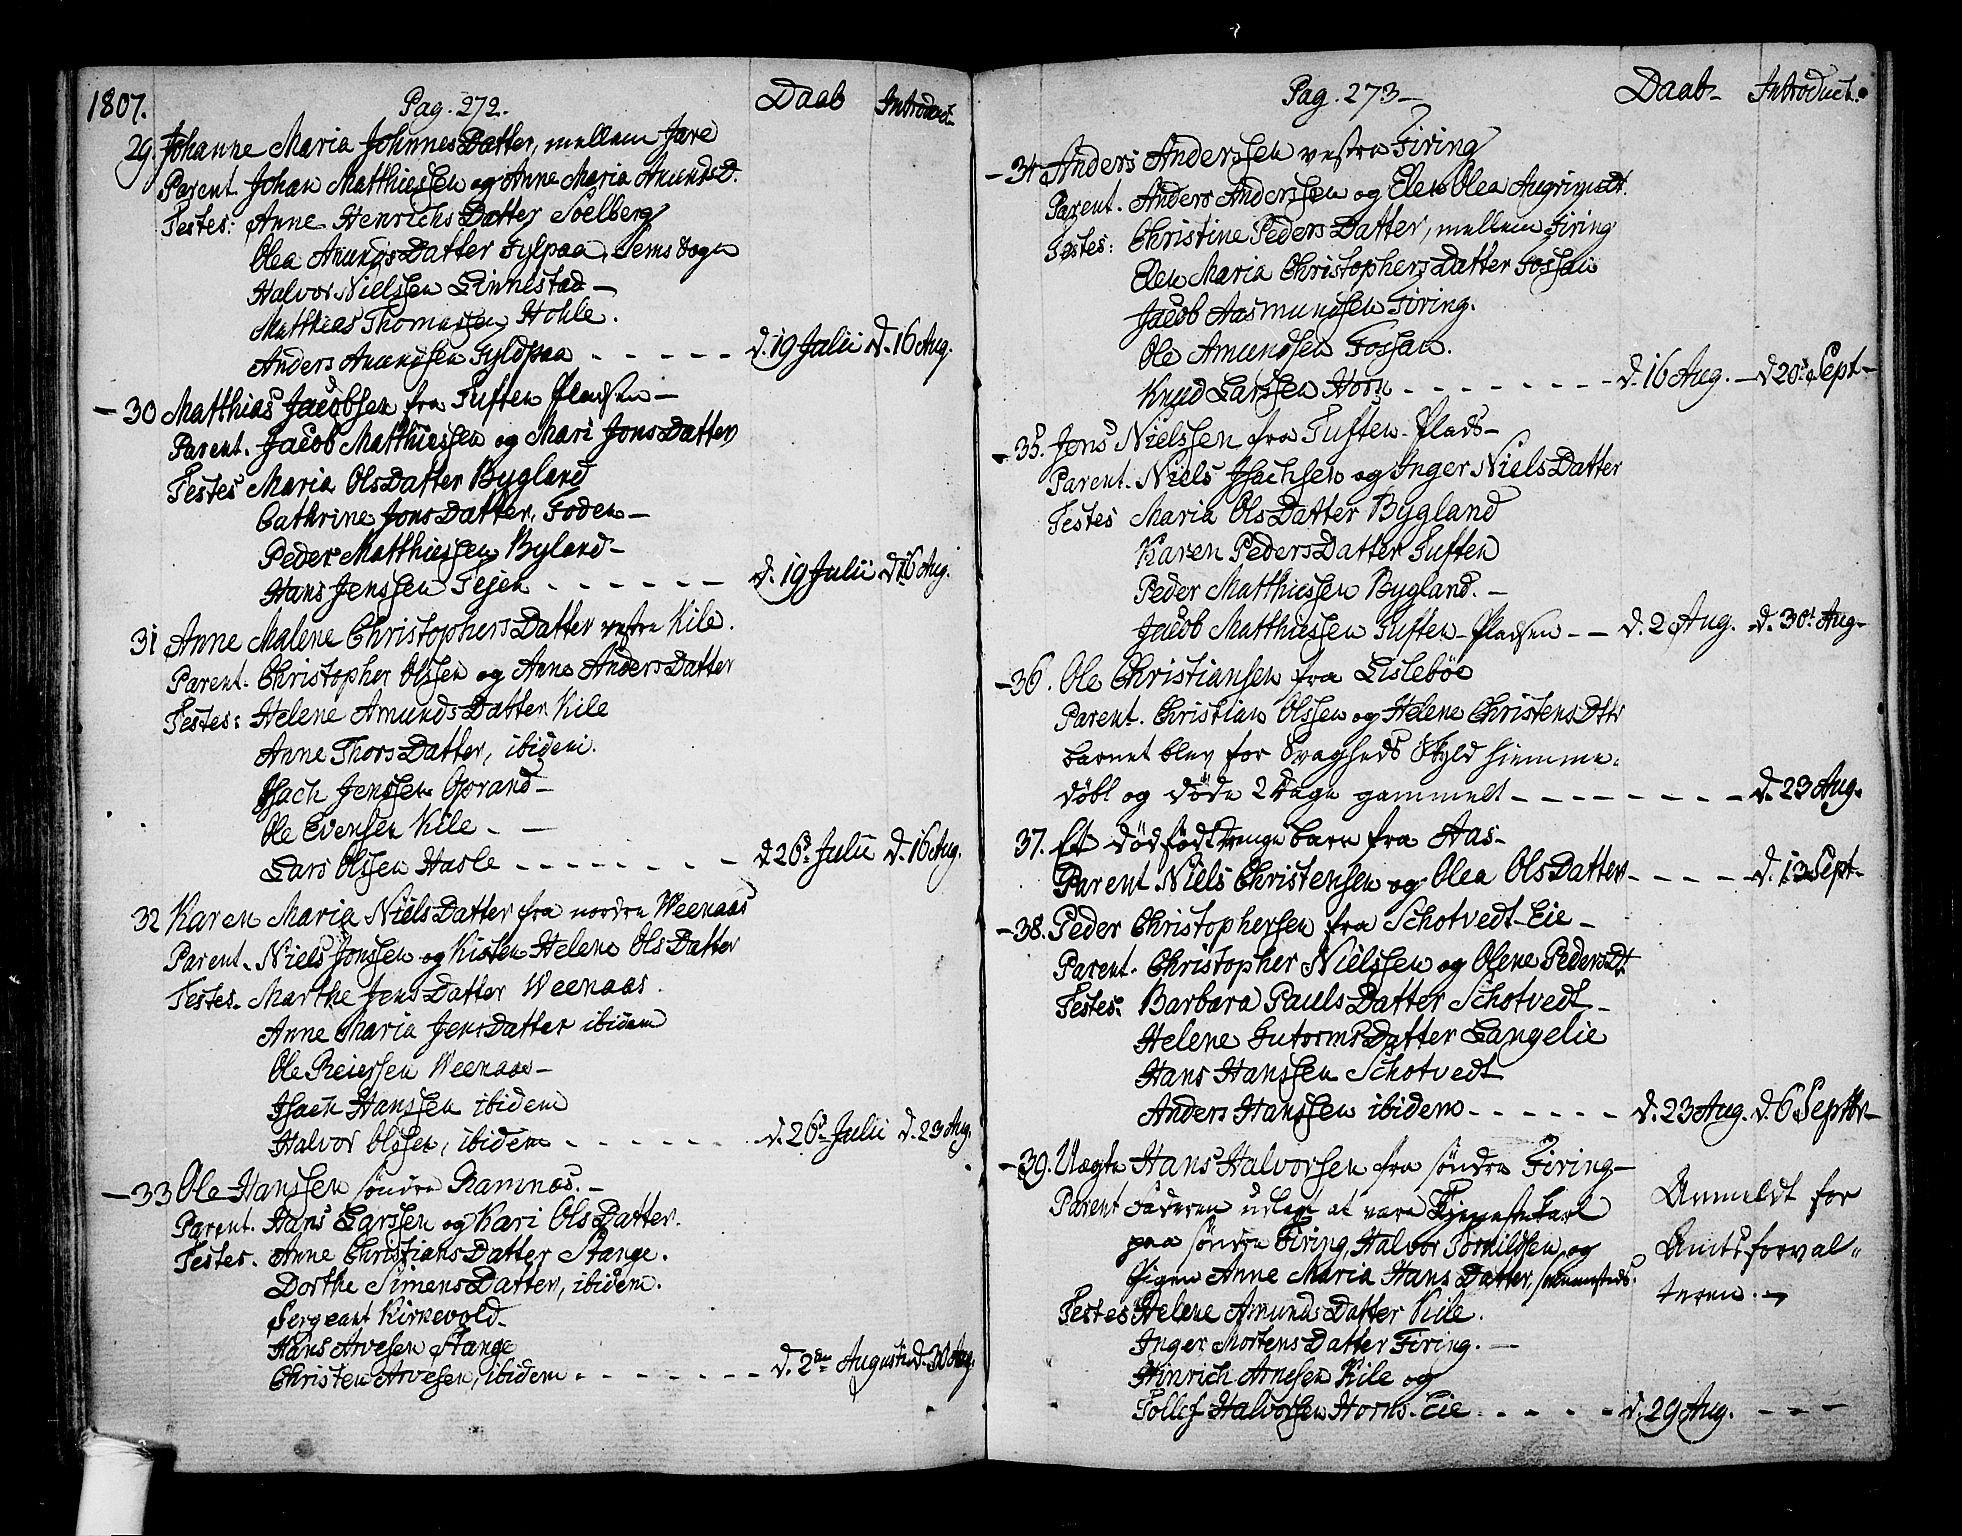 1807.
Pag. 272.
Daab
Introduct.
29. Johanne Maria JohnnesDatter, mellem Jare
Parent. Johan Matthiessen og Anne Maria AmundsD.
Testes: Anne HenrichsDatter Soelberg
Olea AmundsDatter Gylpaa, Semsogn
Halvor Nielssen Linnestad –
Matthias Thomassen Hohle.
Anders Amundsen Gyldpaa - - - - - d. 19 Julii d. 16 Aug.
– 30 Matthias Jacobsen fra Tuften Pladsen –
Parent. Jacob Matthiessen og Mari JonsDatter
Testes Maria OlsDatter Bygland
Cathrine JonsDatter, Foden –
Peder Matthiessen Byland –
Hans Jenssen Tejen - - - - - - d. 19 Julii d. 16 Aug.
31 Anne Malene ChristophersDatter vestre Kile.
Parent. Christopher Olssen og Anne AndersDatter
Testes: Helene AmundsDatter Kile
Anne ThorsDatter, ibidem.
Isach Jenssen Gorand –
Ole Evensen Kile - –
Lars Olssen Hasle - - - - - - - - d 26d. Julii d. 16 Aug.
32 Karen Maria NielsDatter fra nordre Weenaas
Parent. Niels Jonssen og Kisten Helene OlsDatter
Testes. Marthe JensDatter Weenaas.
Anne Maria JensDatter ibidem
Ole Reierssen Weenaas –
Isach Hanssen ibidem
Halvor Olssen, ibidem - - - - - - d. 26d. Julii d. 23 Aug.
– 33 Ole Hanssen søndre Ramnæs. –
Parent. Hans Larssen og Kari OlsDatter.
Testes. Anne ChristiansDatter Stange.
Dorthe SimensDatter, ibidem.
Sergeant Kirkevold –
Hans Arvesen Stange
Christen Arvesen, ibidem - - - - - - - - d. 2den Augusti d. 30 Aug.
Pag. 273 –
Daab –
Introduct.
– 34 Anders Anderssen vestre Firing
Parent. Anders Anderssen og Elen Olea AugrimsDt.
Testes: Christine PedersDatter, mellem Firing
Elen Maria ChristophersDatter Fossan
Jacob Aasmundsen Firing.
Ole Amundsen Fossan.
Knud Larssen Horn - - - - - - - - d. 16 Aug. – d 20d. Sept –
– 35. Jens Nielssen fra Tuften-Plads –
Parent. Niels Isachsen og Inger NielsDatter
Testes Maria OlsDatter Bygland
Karen PedersDatter Tuften
Peder Matthiessen Bygland. –
Jacob Matthiessen Tuften-Pladsen - – d. 2 Aug. d. 30d. Aug –
– 36. Ole Christiansen fra Lislebøe
Parent. Christian Olssen og Helene ChristensDttr
barnet blev for Svagheds Skyld hiemme-
døbt og døde 2 Dage gammelt - - - - - - - - d. 23 Aug.
37. Et dødfødt drenge barn fra Aas –
Parent Niels Christensen og Olea OlsDatter - - - - d. 13 Sept –
– 38. Peder Christophersen fra Schotvedt-Eie –
Parent. Christopher Nielssen og Olene PedersDt.
Testes: Barbara PaulsDatter Schotvedt –
Helene GutormsDatter Langelie
Hans Hanssen Schotvedt
Anders Hanssen ibidem - - - - - - d. 23 Aug. d. 6 Septbr –
– 39. Uægte Hans Halvorsen fra søndre Firing –
Parent Faderen udlagt at være Tjenestekarl
paa søndre Firing Halvor Torkildsen og
Pigen Anne Maria HansDatter, sammesteds.
Anmeldt for
Amtsforval-
teren. –
Testes Helene AmundsDatter Kile.
Inger MortensDatter Firing. –
Hinrich Arnesen Kile og
Tollef Halvorssen Horns-Eie - - - - d. 29 Aug. - - -